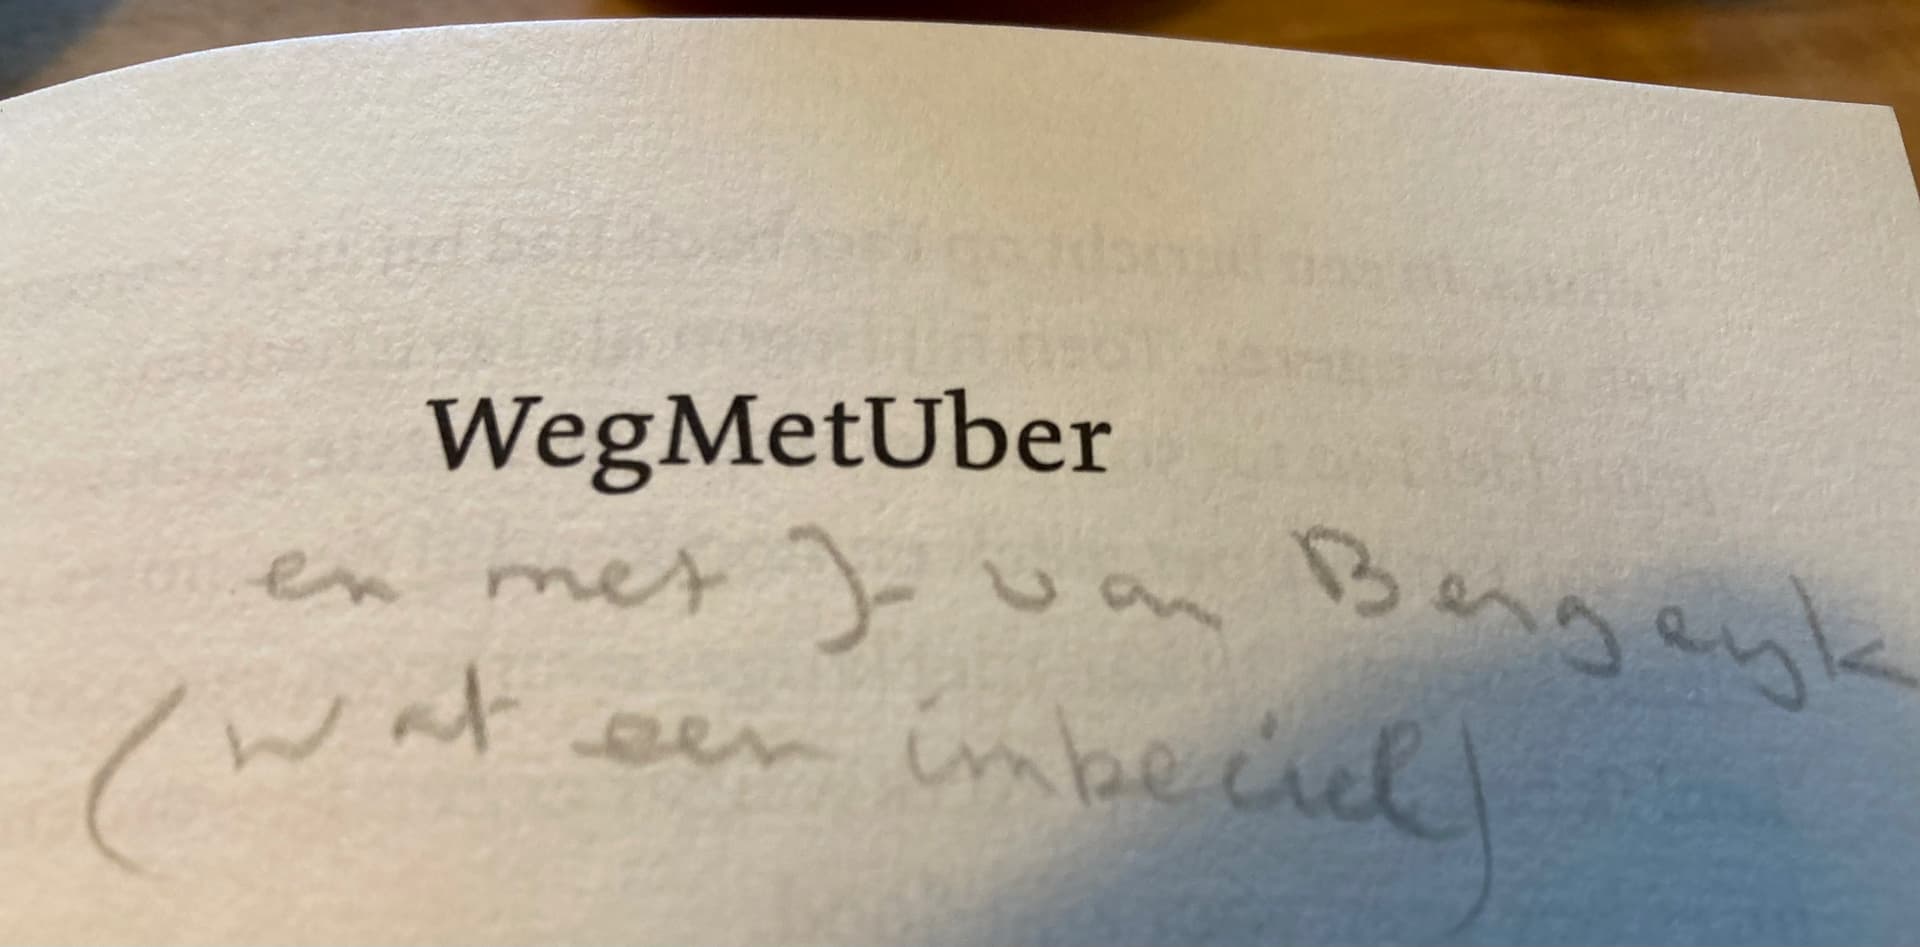 WegMetUber
en met J. van Bergeyk
(wat een imbeciel)